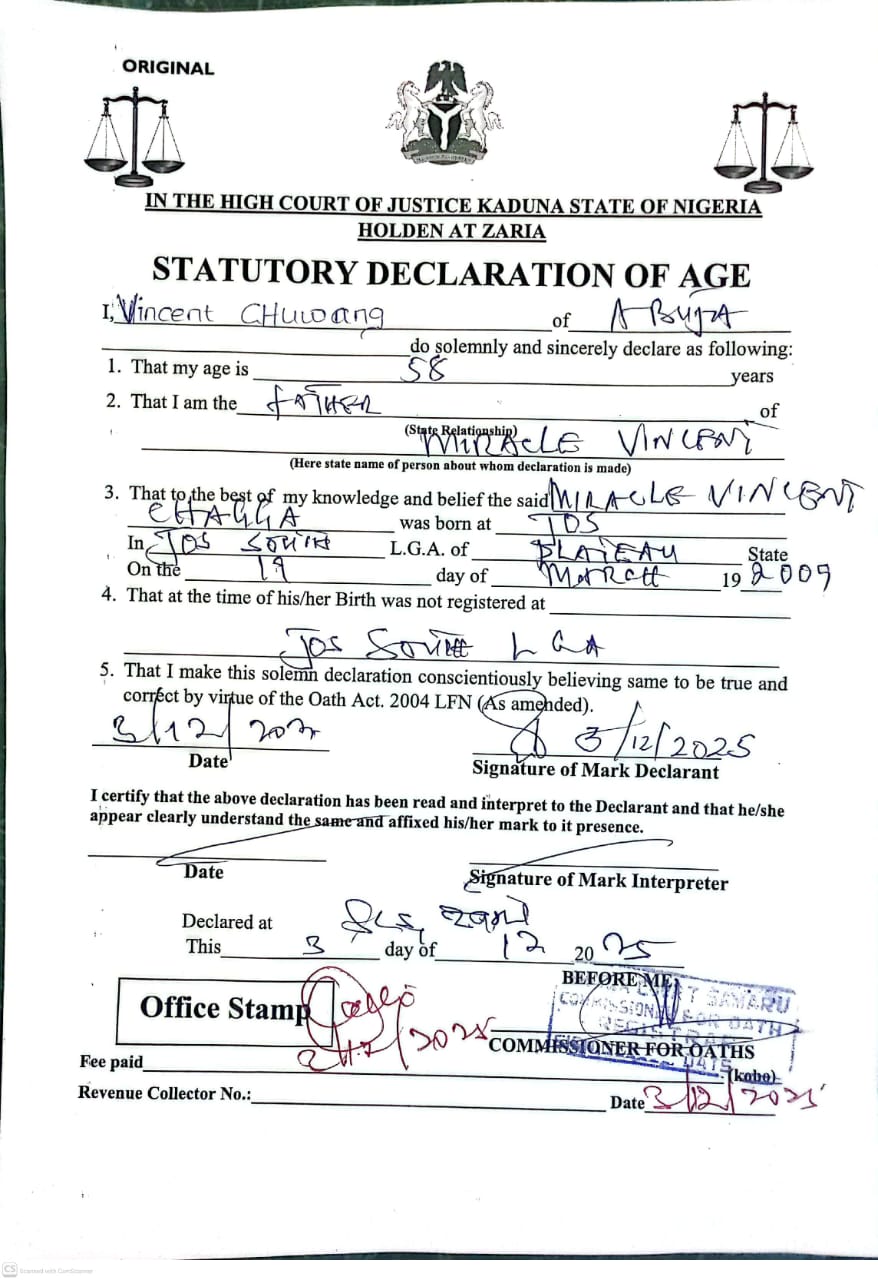 ORIGINAL
IN THE HIGH COURT OF JUSTICE KADUNA STATE OF NIGERIA
HOLDEN AT ZARIA
STATUTORY DECLARATION OF AGE
I, Vincent CHuwang of ABUJA
do solemnly and sincerely declare as following:
1. That my age is 58 years
2. That I am the FATHER of
(State Relationship)
MIRACLE VINCENT
(Here state name of person about whom declaration is made)
3. That to the best of my knowledge and belief the said MIRACLE VINCENT
was born at JOS
In JOS SOUTH L.G.A. of PLATEAU State
On the 19 day of MARCH 19 2009
4. That at the time of his/her Birth was not registered at
JOS SOUTH LGA
5. That I make this solemn declaration conscientiously believing same to be true and
correct by virtue of the Oath Act. 2004 LFN (As amehded).
3/12/2025 3/12/2025
Date Signature of Mark Declarant
I certify that the above declaration has been read and interpret to the Declarant and that he/she
appear clearly understand the same and affixed his/her mark to it presence.
Date Signature of Mark Interpreter
Declared at
This 3 day of 12 20 25
BEFORE ME
Office Stamp
SAMARU
COMMISSIONER FOR OATH
REGISTRAR
COMMISSIONER FOR OATHS
Fee paid (kobo)
Revenue Collector No.: Date 3/12/2025
CS Scanned with CamScanner